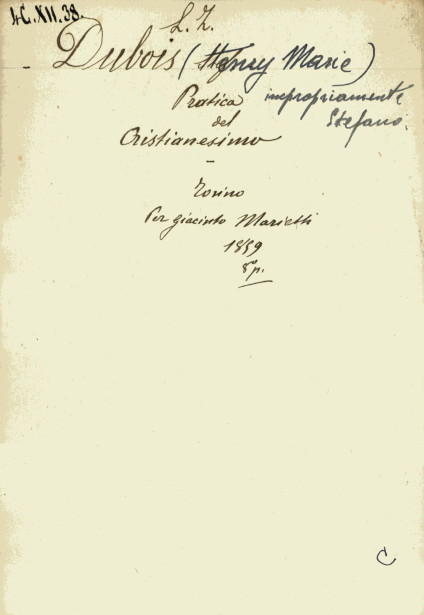 4C.XII.38.
L. Z.
Dubois (Henry Marie)
Pratica impropriamente
del Stefano.
Cristianesimo
Torino
Per Giacinto Marietti
1859
8° p.
C